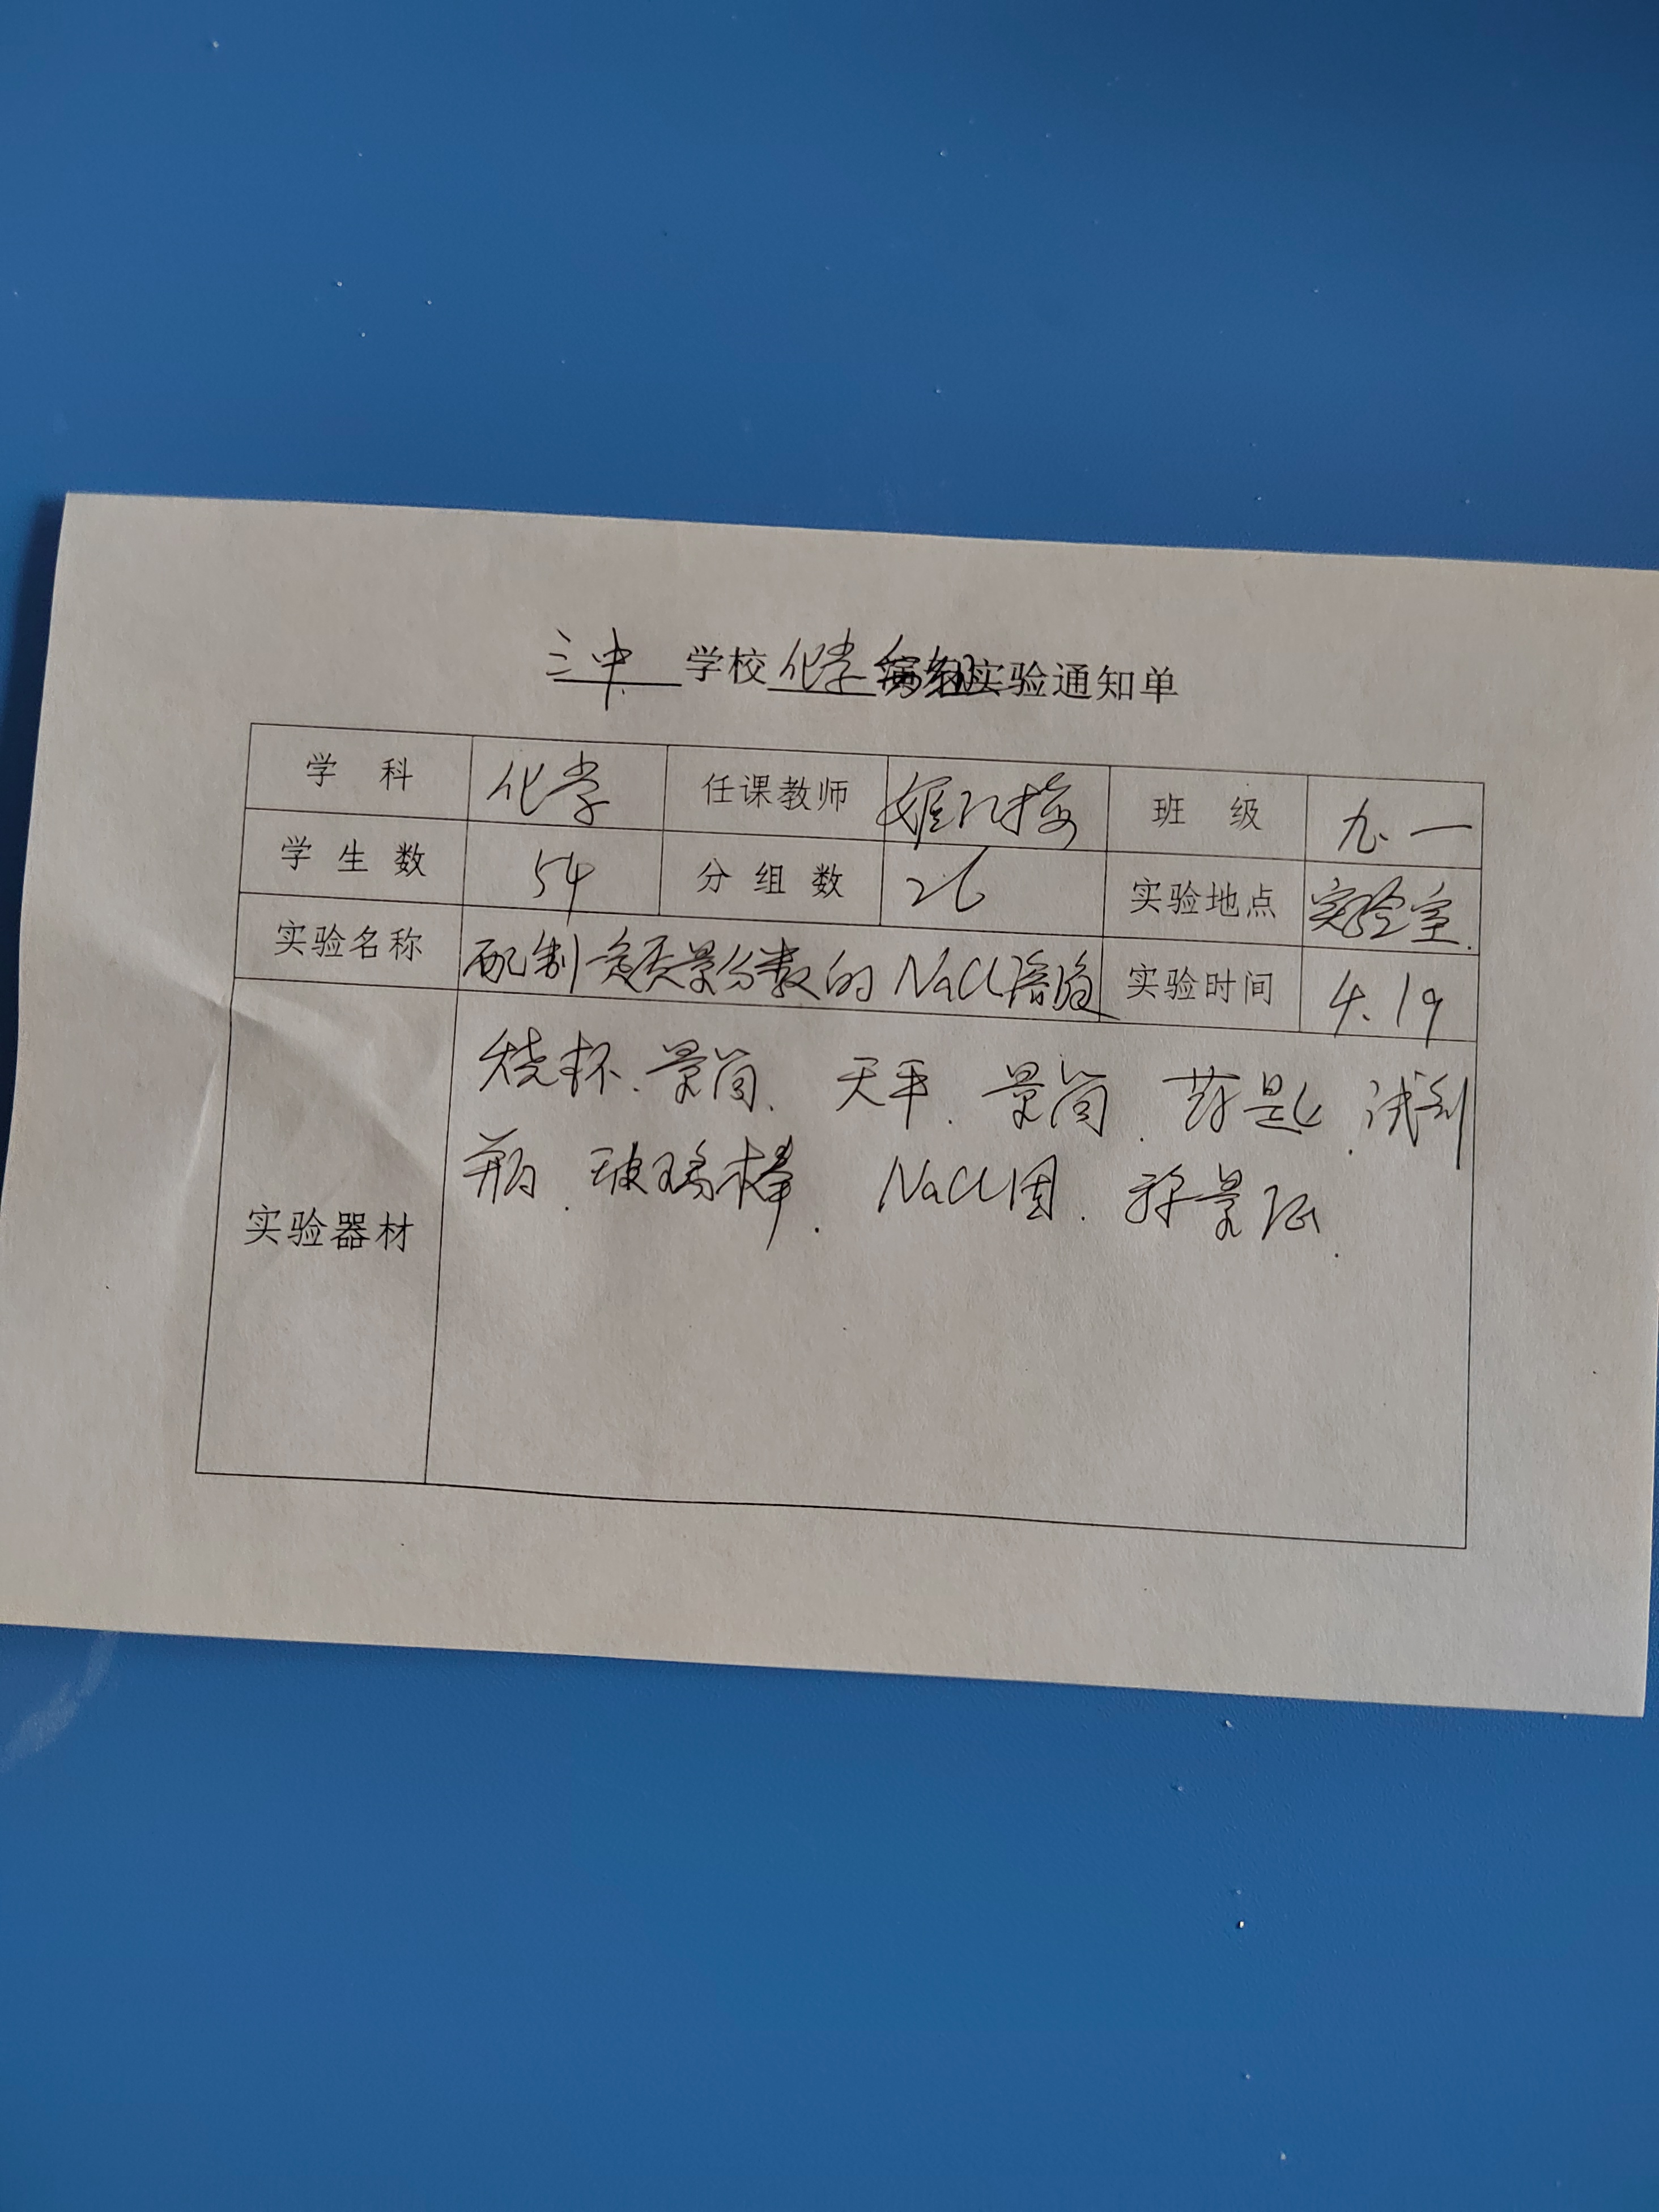 三中 学校 化学 分组实验通知单
学 科 化学 任课教师 班 级 九.一
学 生 数 54 分 组 数 26 实验地点 实验室.
实验名称 配制 定质量分数的NaCl溶液 实验时间 4.19
实验器材
烧杯、量筒、天平、量筒、药匙、试剂
瓶、玻璃棒、NaCl固、称量纸.